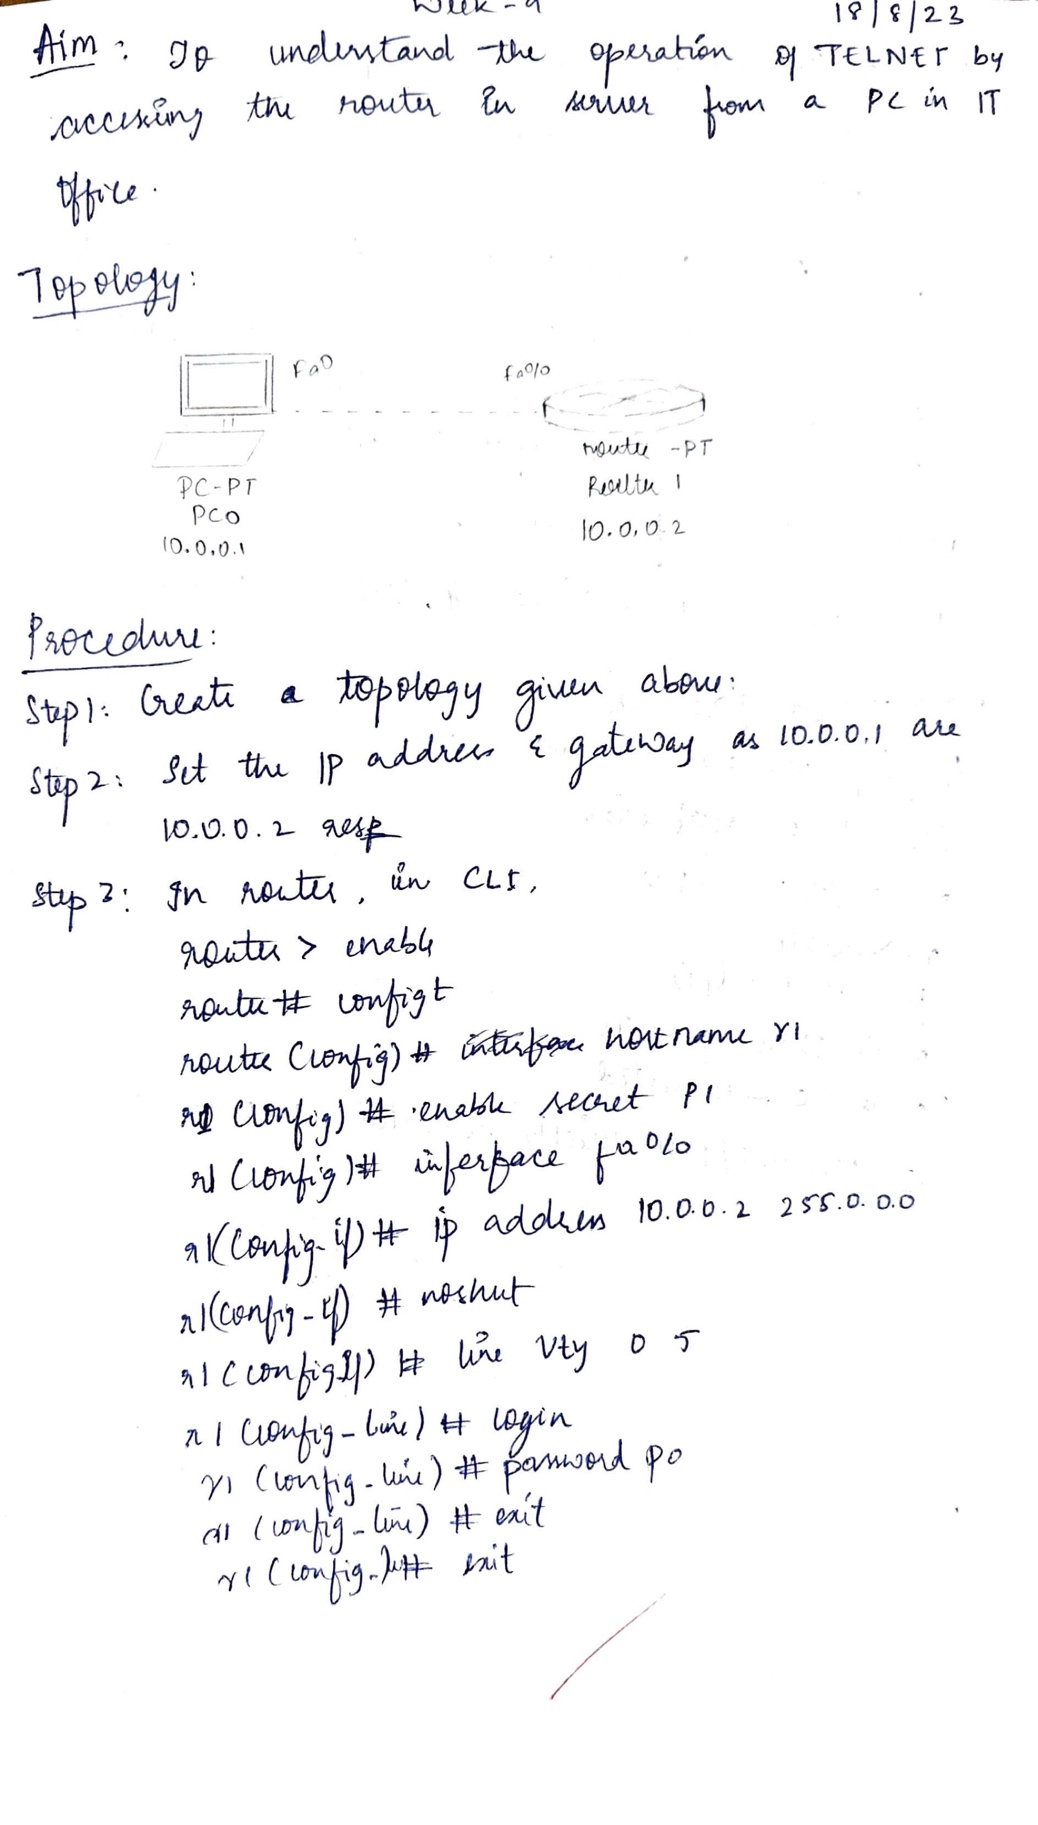 Week - 9
18/8/23
Aim : To understand the operation of TELNET by
accessing the router in server from a PC in IT
office.
Topology:
Fa0
fa0/0
PC-PT
PC0
10.0.0.1
router -PT
Router 1
10.0.0.2
Procedure:
Step1: Create a topology given above:
Step 2: Set the IP address & gateway as 10.0.0.1 are
10.0.0.2 resp
Step 3: In router, in CLI,
router > enable
router # config t
router (config) # interface hostname r1
r1 (config) # enable secret P1
r1 (config) # inferface fa0/0
r1(Config-if) # ip address 10.0.0.2 255.0.0.0
r1(config-if) # noshut
r1 (config if) # line vty 0 5
r1 (config-line) # login
r1 (config-line) # password p0
r1 (config-line) # exit
r1 (config-)# exit